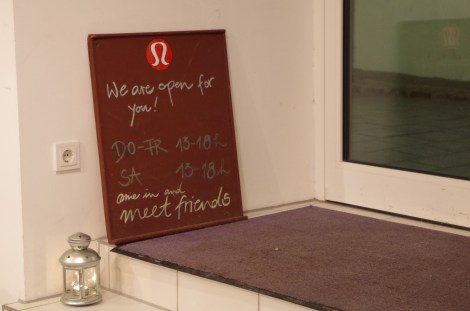 We are open for
you!
DO-FR 15-18h
SA 15-18h
come in and
meet friends